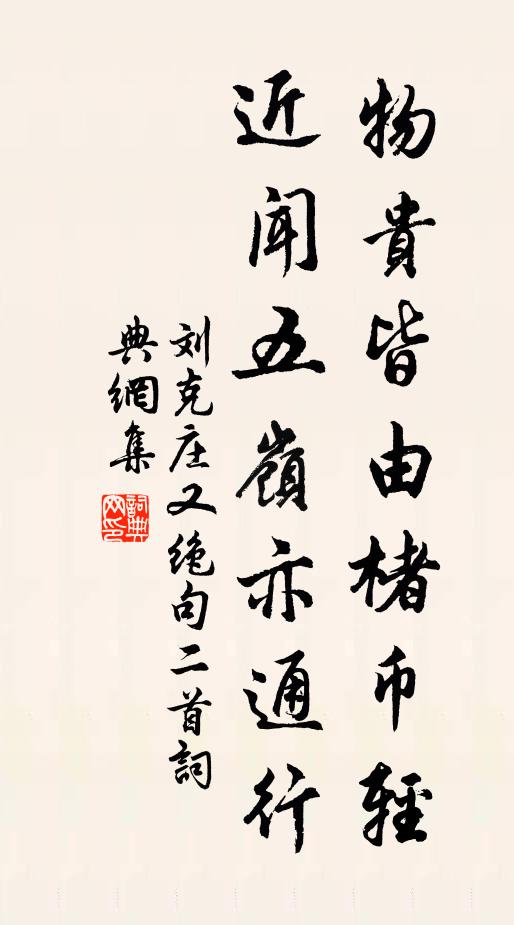 物貴皆由楮币輕
近聞五嶺亦通行
刘克庄又绝句二首詞
典網集
詞典
网印